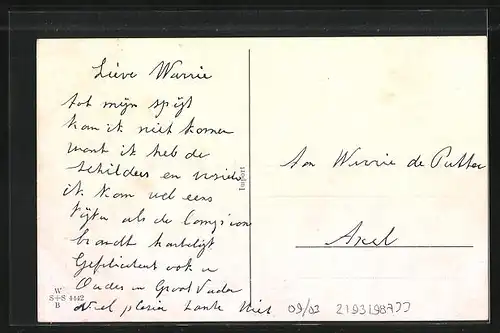 Lieve Warrie
tot mijn spijt
kan ik niet komen
want ik heb de
schilders en
ik kom wel eens
kijken als de
brandt hartelijk
Gefeliciteert ook u
Ouders en Groot Vader
Veel plezier tante Niet
Aan Warrie de Putter
Axel
Import
W
S+S 4442
B
09/03 2193L98AJJ